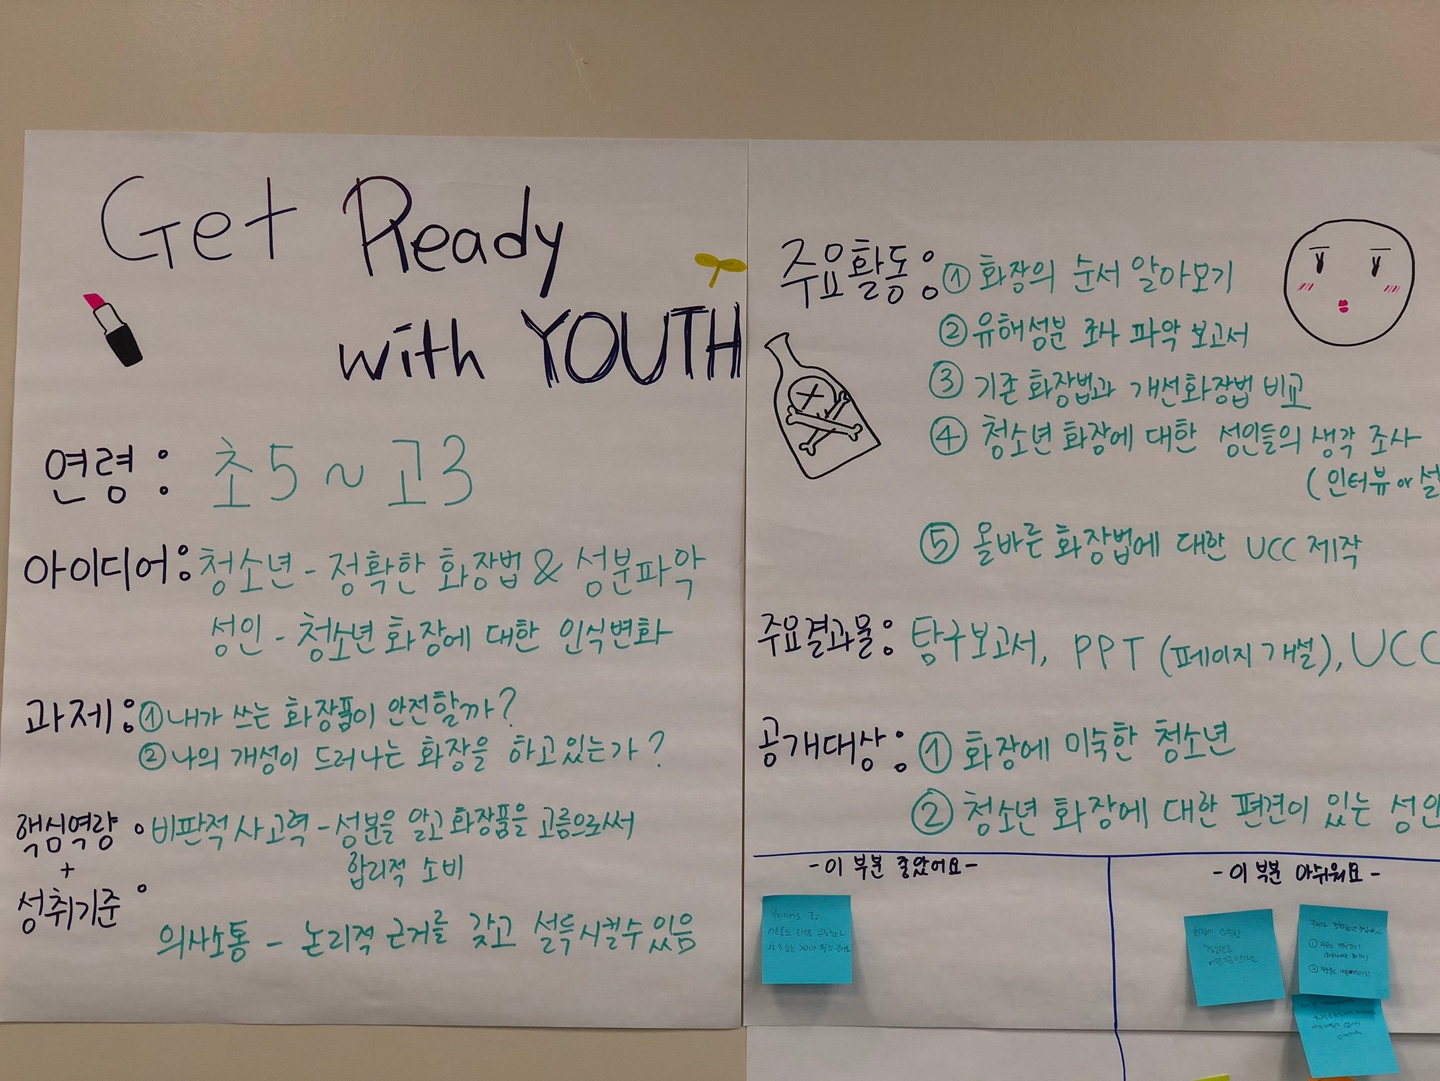 Get Ready
with YOUTH
연령 : 초5 ~ 고3
아이디어 : 청소년 - 정확한 화장법 & 성분파악
성인 - 청소년 화장에 대한 인식변화
과제 : ① 내가 쓰는 화장품이 안전할까?
② 나의 개성이 드러나는 화장을 하고있는가?
핵심역량
+
성취기준 : 비판적 사고력 - 성분을 알고 화장품을 고름으로써
합리적 소비
의사소통 - 논리적 근거를 갖고 설득시킬수있음
주요활동 : ① 화장의 순서 알아보기
② 유해성분 조사 파악 보고서
③ 기존 화장법과 개선화장법 비교
④ 청소년 화장에 대한 성인들의 생각 조사
(인터뷰 or 설
⑤ 올바른 화장법에 대한 UCC 제작
주요결과물 : 탐구보고서, PPT (페이지 개설), UCC
공개대상 : ① 화장에 미숙한 청소년
② 청소년 화장에 대한 편견이 있는 성인
- 이 부분 좋았어요 -
- 이 부분 아쉬워요 -